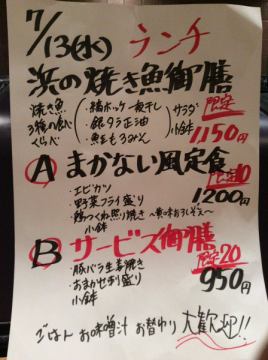 7/13(水) ランチ
浜の焼き魚御膳
焼き魚3種の食べくらべ
・縞ホッケ一夜干し
・銀タラ正油
・鮭もろみん
サラダ
小鉢
限定
1150円
A まかない風定食
限定10
1200円
・エビカツ
・野菜フライ盛り
・鶏つくね照り焼き 〜薬味おろしぞえ〜
小鉢
B サービス御膳
限定20
950円
・豚バラ生姜焼き
・おまかせ刺し盛り
・小鉢
ごはん お味噌汁 お替わり 大歓迎!!